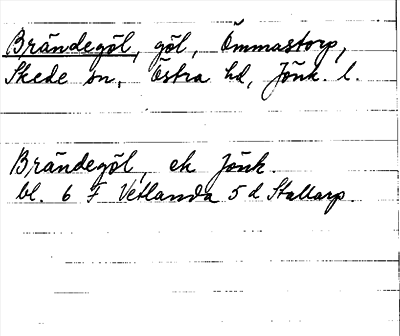 Brändegöl, göl, Ömmastorp,
Skede sn, Östra hd, Jönk. l.
Brändegöl, ek Jönk.
bl. 6 F Vetlanda 5 d Stallarp.